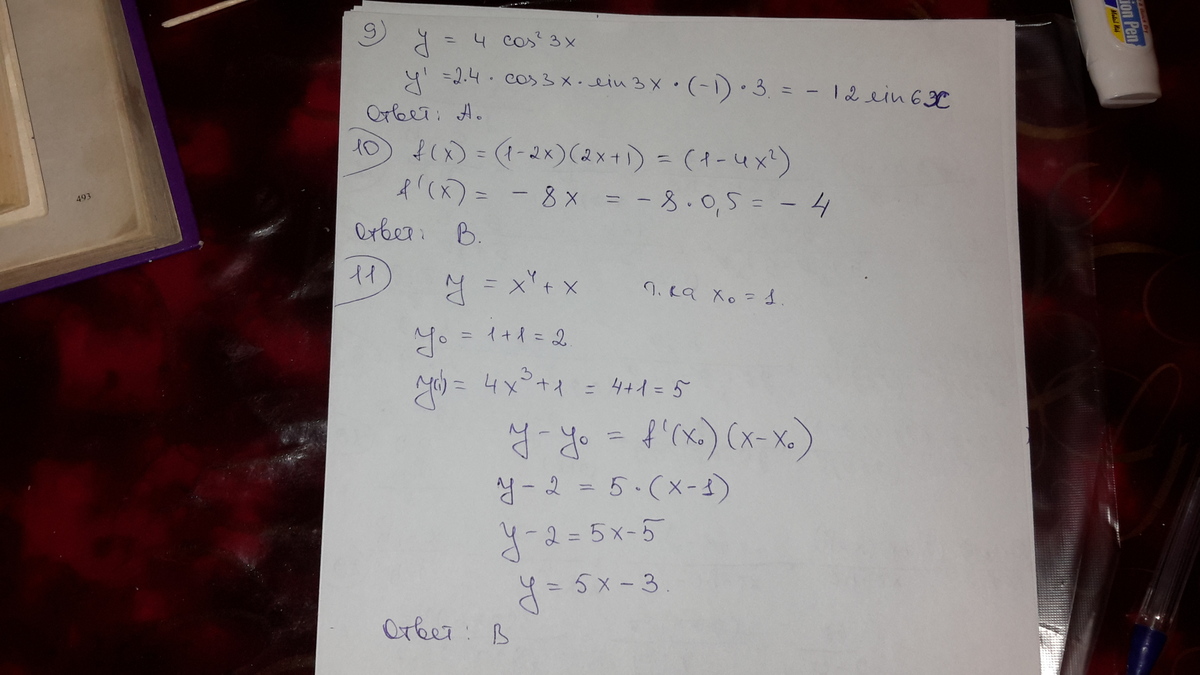 9) y = 4 cos² 3x
y' = 2·4 · cos 3x · sin 3x · (-1) · 3. = - 12 sin 6x
Ответ: А.
10) f(x) = (1-2x)(2x+1) = (1-4x²)
f'(x) = - 8x = - 8 · 0,5 = - 4
Ответ: В.
11) y = x⁴ + x т. ка x₀ = 1.
y₀ = 1+1 = 2
y'(1) = 4x³+1 = 4+1 = 5
y - y₀ = f'(x₀)(x-x₀)
y - 2 = 5 · (x-1)
y - 2 = 5x-5
y = 5x-3.
Ответ: В
493
ion Pen